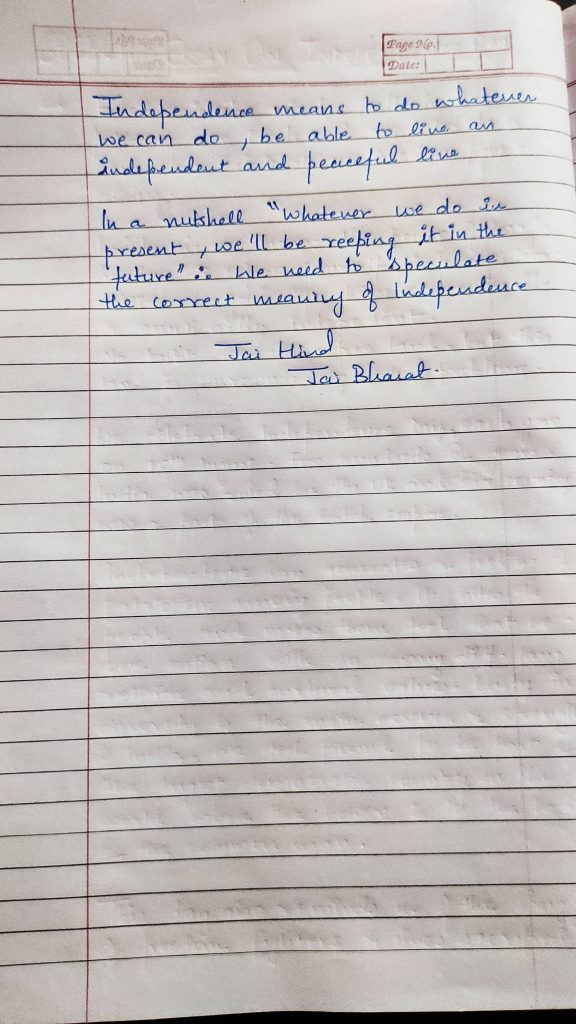 Page No.
Date:
Independence means to do whatever
we can do , be able to live an
independent and peaceful live
In a nutshell "whatever we do in
present , we'll be reeping it in the
future" ∴ We need to speculate
the correct meaning of Independence
Jai Hind
Jai Bharat.